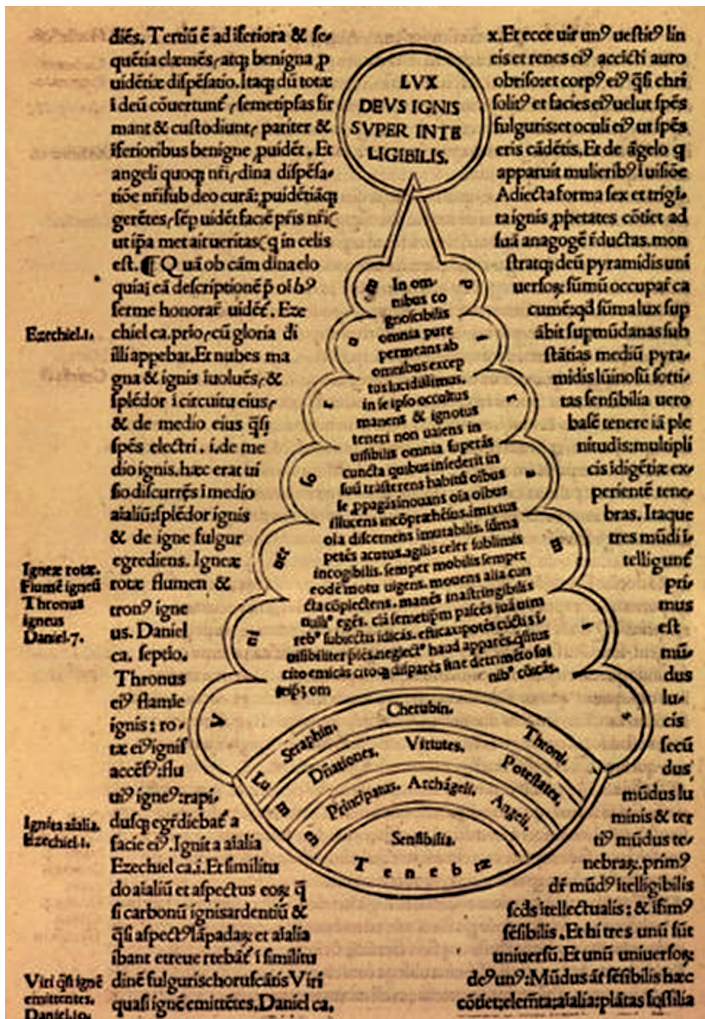 diēs. Tertiū ē ad īferiora & se⸗
quētia clæmēs, atq; benigna ,p
uidētiæ dispēsatio. Itaq; dū totæ
ī deū cōuertunt, semetipsas fir
mant & custodiunt, pariter &
īferioribus benigne ,puidēt. Et
angeli quoq; nr̄i, dina dispēsa⸗
tiōe nr̄isub deo curā: ,puidētiāq;
gerētes, sēp uidēt faciē pr̄is nr̄i(
ut ip̄a met ait ueritas( q in celis
est. ¶ Q uā ob cām dina elo
quia; eā descriptionē p̄ oībꝰ
ferme honorar̄ uidēt. Eze
chiel ca. prio, cū gloria di
illi appebat. Et nubes ma
gna & ignis īuoluēs, &
splēdor ī circuitu eius,
& de medio eius q̄si
spēs electri. i. de me
dio ignis. hæc erat ui
sio discurrēs ī medio
aīaliū: splēdor ignis
& de igne fulgur
egrediens. Igneæ
rotæ flumen &
tronꝰ igne
us. Daniel
ca. septio.
Thronus
eiꝰ flamæ
ignis: ro⸗
tæ eiꝰ ignis
accēsꝰ: flu
uiꝰ igneꝰ: rapi⸗
dusq; egr̄diebat a
facie eiꝰ. Ignita aīalia
Ezechiel ca. i. Et similitu
do aīaliū et aspectus eoꝝ q̄
si carbonū ignis ardentiū &
q̄si aspectꝰ lāpadaꝝ et aīalia
ibant et reuertebāt ī similitu
dinē fulguris choruscātis Viri
quasi ignē emittētes. Daniel ca.
Ezechiel. 1.
Igneæ rotæ.
Flumē igneū
Thronus
igneus
Daniel. 7.
Ignita aīalia.
Ezechiel. 1.
Viri q̄si ignē
emittentes.
Daniel. 10.
LVX
DEVS IGNIS
SVPER INTE
LIGIBILIS.
In om⸗
nibus co
gnoscibilis
omnia pure
permeans ab
omnibus excep
tus lucidissimus.
in se ipso occultus
manens & ignotus
teneri non ualens in
uisibilis omnia superās
cuncta quibus insederit in
suū trāsferens habitū oībus
se ,ppagās inouans oīa oībus
illucens incōpræhēsus. imixtus
oīa discernens imutabilis. sūma
petēs acutus. agilis celer sublimis
incogibilis. semper mobilis semper
eodē motu uigens. mouens alia cun
cta cōplectens. manēs inastringibilis
nullꝰ egēs. clā semetip̄m pascēs suā uim
rebꝰ subiectis idicās. efficax potēs cūctis i
uisibiliter p̄sēs. neglectꝰ haud apparēs. q̄situs
cito emicās citoq; disparēs sine detrimēto sui
seip̄; om nibꝰ cōicās.
P i r a m i s
V ni uer s a
Seraphin. Cherubin. Throni.
Dn̄ationes. Virtutes. Potestates.
Principatus. Archāgeli. Angeli.
Lu m en
Sensibilia.
Tenebræ
x. Et ecce uir unꝰ uestitꝰ lin
eis et renes eiꝰ accīcti auro
obriso: et corpꝰ eiꝰ q̄si chri
solitꝰ et facies eiꝰ uelut spēs
fulguris: et oculi eiꝰ ut spēs
eris cādētis. Et de āgelo q
apparuit mulieribꝰ ī uisiōe
Adiecta forma sex et trigī⸗
ta ignis ,pp̄etates cōtiet ad
suā anagogē r̄ductas. mon
stratq; deū pyramidis uni
uersoꝝ sūmū occupar̄ ca
cumē: qd̄ sūma lux sup
ābit supmūdanas sub
stātias mediū pyra⸗
midis lūinosū sorti⸗
tas sensibilia uero
basē tenere iā ple
nitudis: multipli
cis idigētiæ ex⸗
perientē tene⸗
bras. Itaque
tres mūdi ī⸗
telligunt
pri⸗
mus
est
mū⸗
dus
lu⸗
cis
secū
dus
mūdus lu
minis & ter
tiꝰ mūdus te⸗
nebraꝝ. primꝰ
dr̄ mūdꝰ itelligibilis
secd̄s itellectualis: & īfimꝰ
sēsibilis. Et hi tres unū sūt
uniuersū. Et unū uniuersoꝝ
deꝰ unꝰ: Mūdus āt sēsibilis hæc
cōtiet: elemēta: aīalia: plātas fossilia